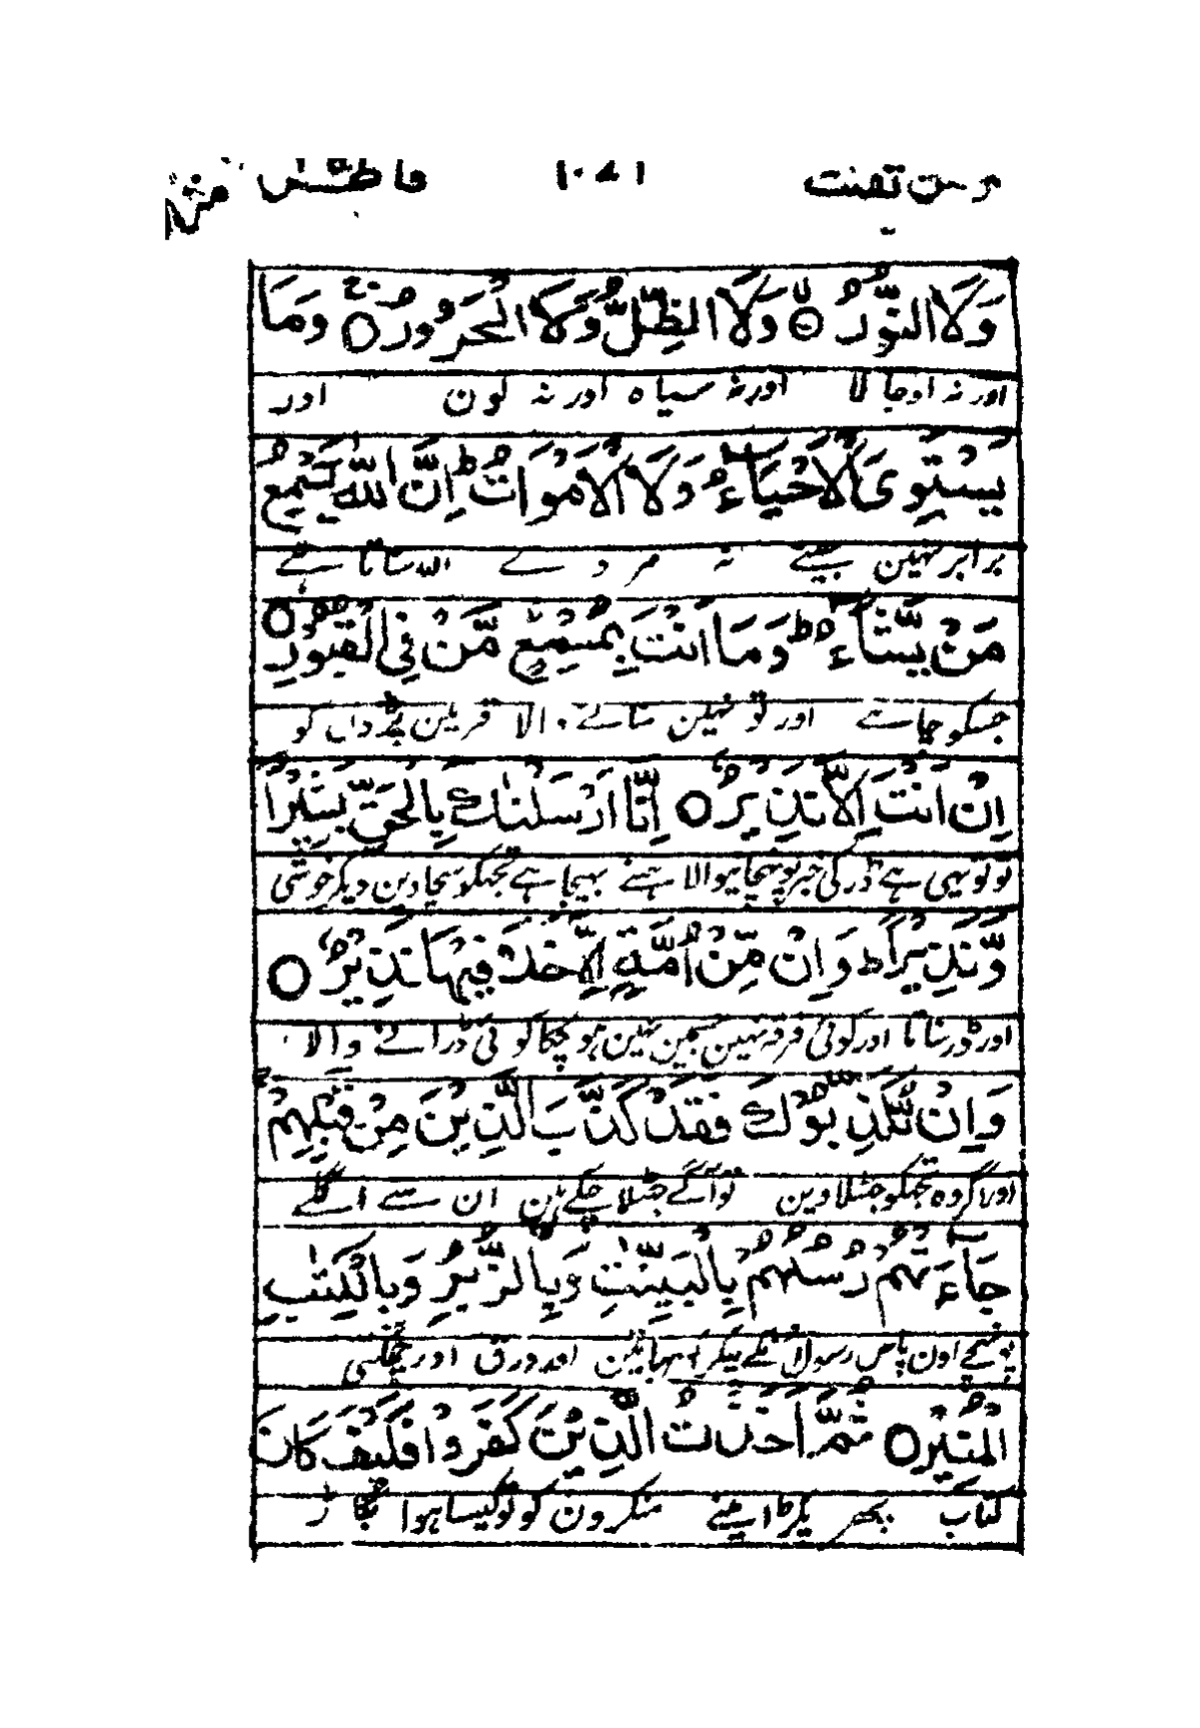 ومن یقنت ١٠٨١ فاطر منزل
وَلَا النُّوْرُ ۙ وَلَا الظِّلُّ وَلَا الْحَرُوْرُ ۚ وَمَا
اور نہ اوجالا اور نہ سیاہ اور نہ لون اور
يَسْتَوِى الْاَحْيَآءُ وَلَا الْاَمْوَاتُ ؕ اِنَّ اللّٰهَ يُسْمِعُ
برابر نہین جیتے نہ مردے اللہ سناتا ہے
مَنْ يَّشَآءُ ؕ وَمَا اَنْتَ بِمُسْمِعٍ مَّنْ فِى الْقُبُوْرِ
جسکو چاہے اور تو نہین سنانے والا قبر مین پڑوں کو
اِنْ اَنْتَ اِلَّا نَذِيْرٌ اِنَّا اَرْسَلْنٰكَ بِالْحَقِّ بَشِيْرًا
تو تو یہی ہے ڈر کی خبر پونہچانیوالا ہمنے بہیجا ہے تجھکو سچا دین دیکر خوشی
وَّنَذِيْرًا ؕ وَاِنْ مِّنْ اُمَّةٍ اِلَّا خَلَا فِيْهَا نَذِيْرٌ
اور ڈر سناتا اور کوئی فرقہ نہین جسمین نہین ہو چکا کوئی ڈرانے والا
وَاِنْ يُّكَذِّبُوْكَ فَقَدْ كَذَّبَ الَّذِيْنَ مِنْ قَبْلِهِمْ
اور اگر وہ تجھکو جٹھلاوین تو آگے جٹھلا چکے ہین ان سے اگلے
جَآءَتْهُمْ رُسُلُهُمْ بِالْبَيِّنٰتِ وَبِالزُّبُرِ وَبِالْكِتٰبِ
پونہچے اون پاس رسول انکے لیکر اور ورق اور چمکتی
الْمُنِيْرِ ثُمَّ اَخَذْتُ الَّذِيْنَ كَفَرُوْا فَكَيْفَ كَانَ
کتاب پھر پکڑا مینے منکرون کو تو کیسا ہوا بگاڑ